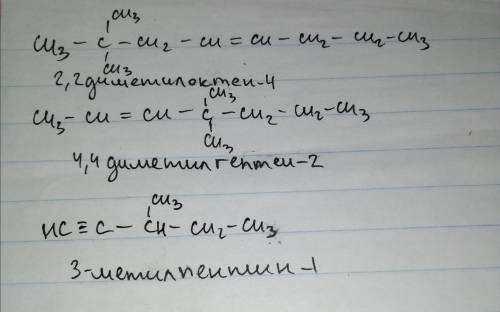 CH₃
CH₃ – C – CH₂ – CH = CH – CH₂ – CH₂ – CH₃
CH₃
2,2диметилоктен-4
CH₃
CH₃ – CH = CH – C – CH₂ – CH₂ – CH₃
CH₃
4,4диметилгептен-2
CH₃
HC ≡ C – CH – CH₂ – CH₃
3-метилпентин-1